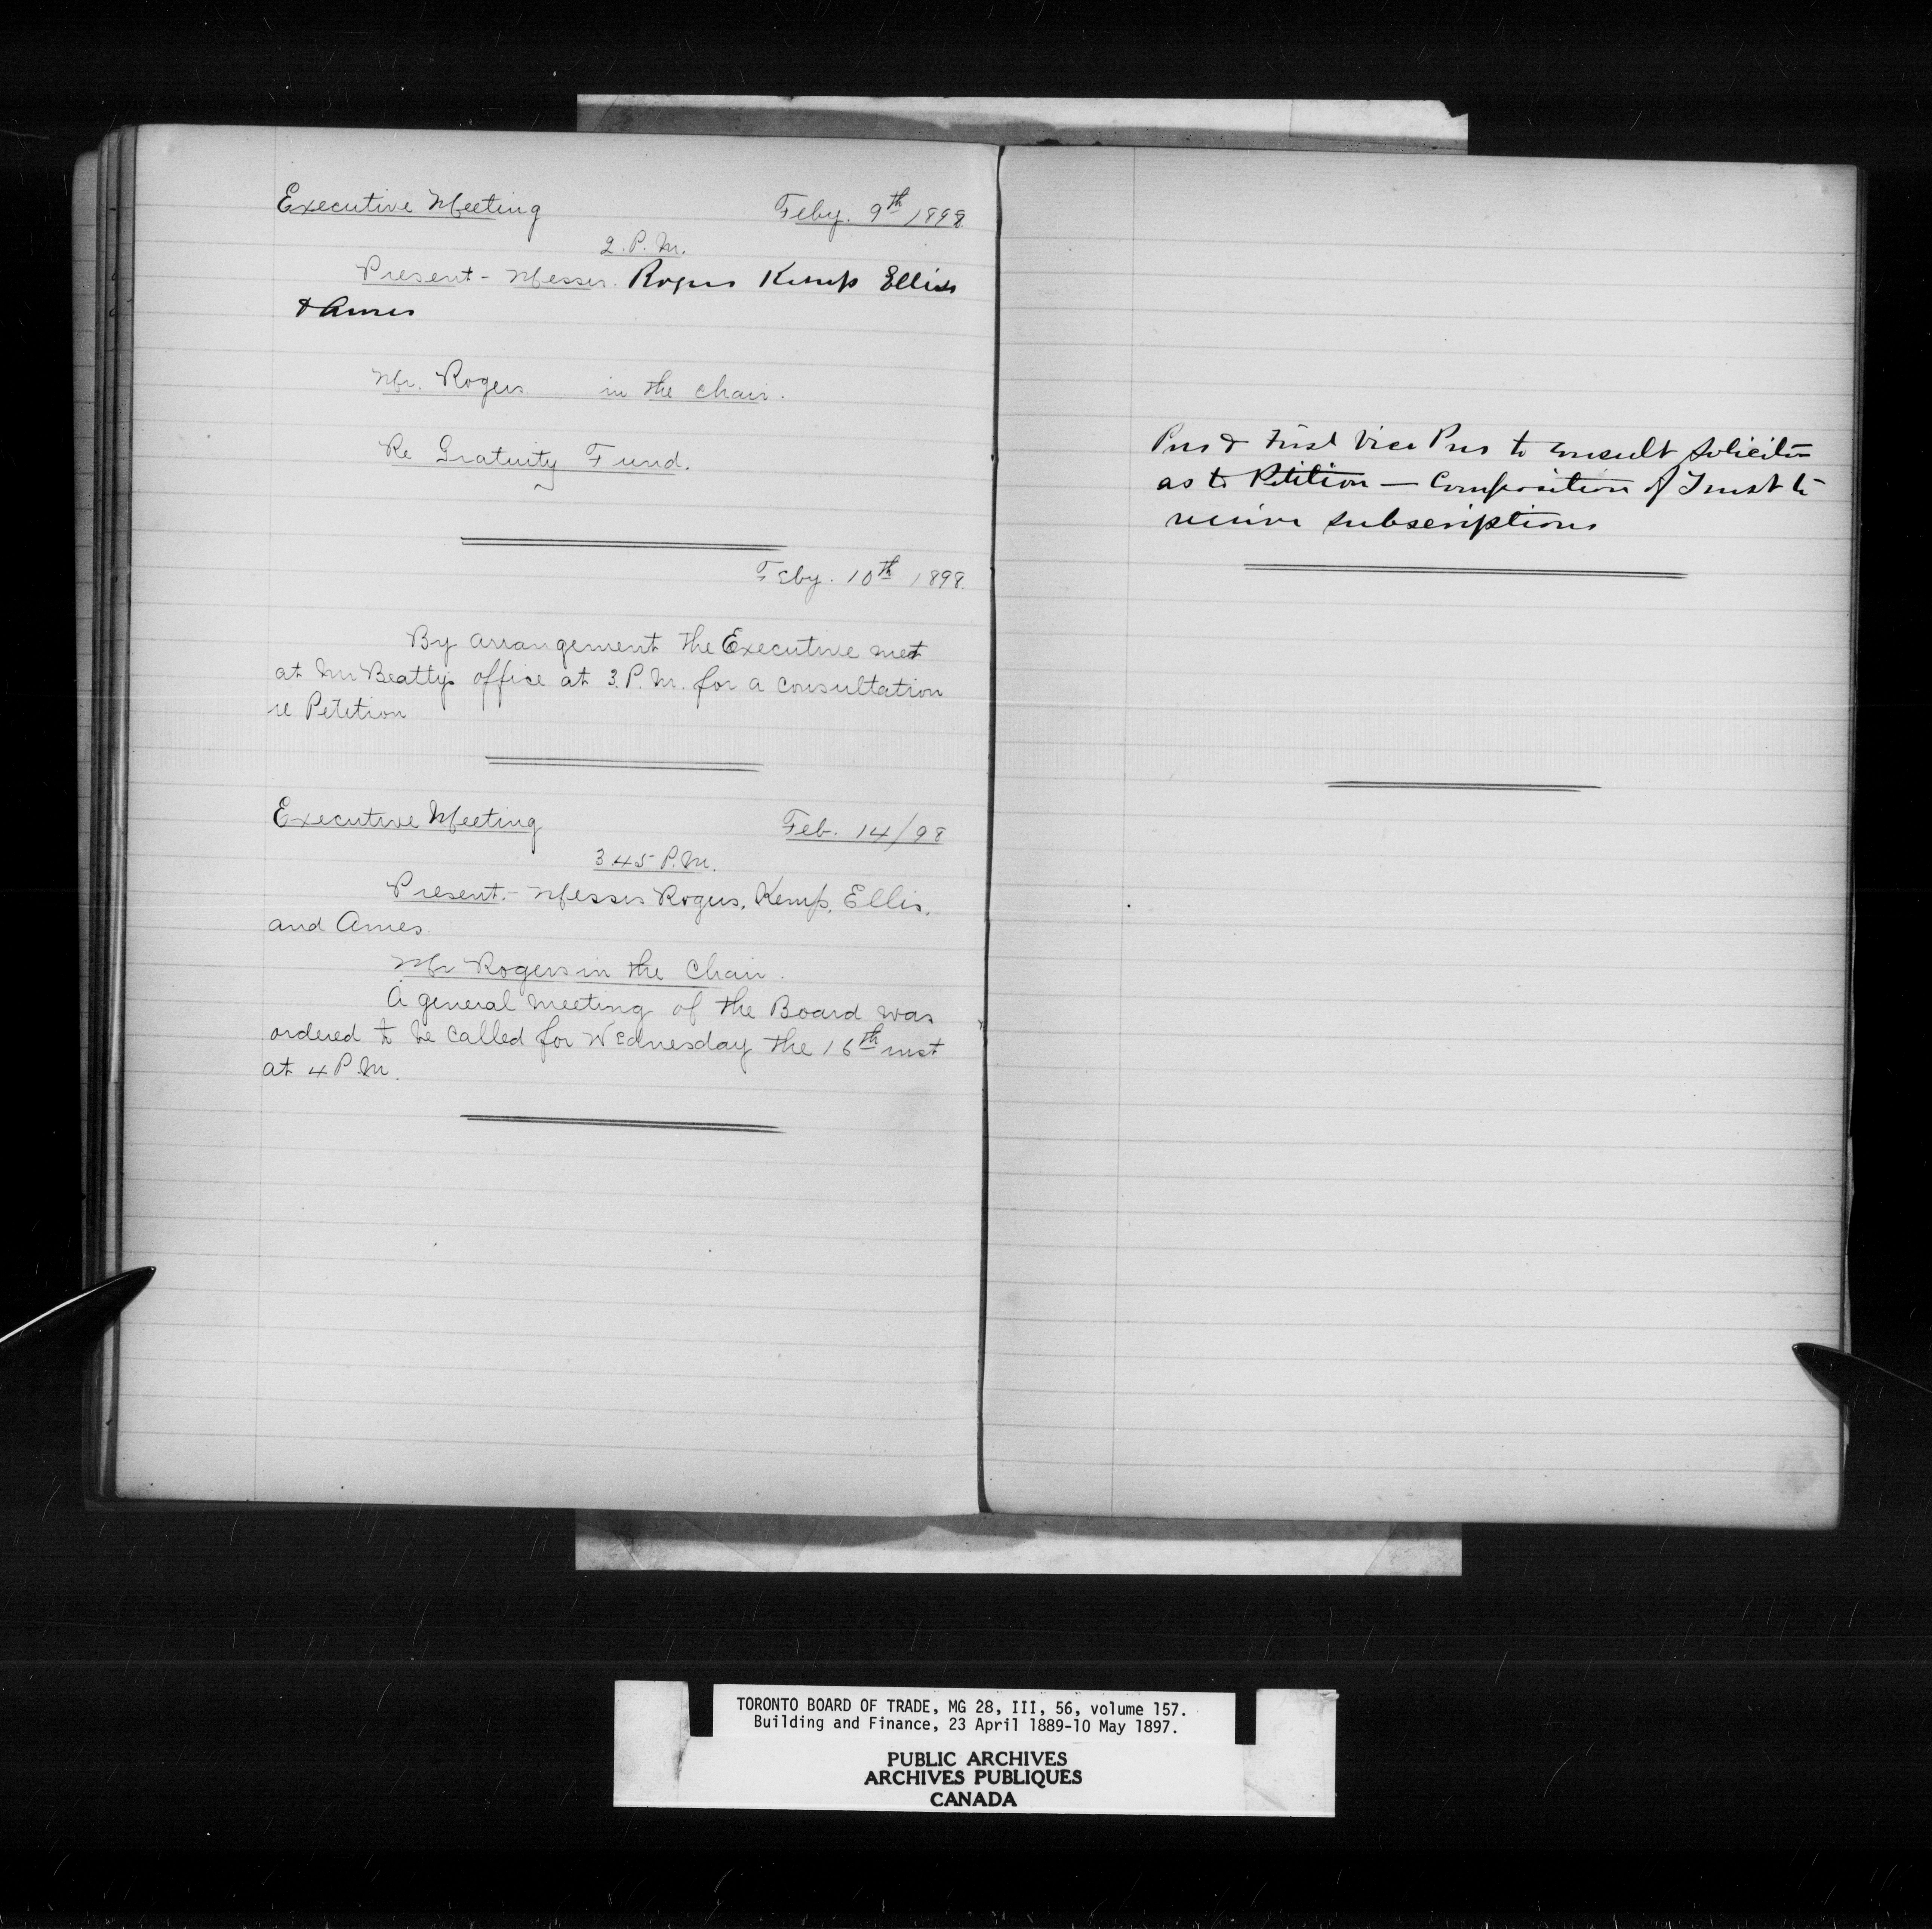 Executive Meeting Feby. 9th 1898
2. P.M.
Present - Messrs. Rogers Kemp Ellis
& Ames
Mr. Rogers in the chair.
Re Gratuity Fund.
Feby. 10th 1898.
By arrangement the Executive met
at Mr Beatty's office at 3. P.M. for a consultation
re Petition
Executive Meeting Feb. 14/98
3 45 P.M.
Present. - Messrs Rogers, Kemp, Ellis,
and Ames.
Mr Rogers in the chair.
A general meeting of the Board was
ordered to be called for Wednesday the 16th inst
at 4 P.M.
Pres & First Vice Pres to consult solicitor
as to Petition — Composition of Trust to
receive subscriptions
TORONTO BOARD OF TRADE, MG 28, III, 56, volume 157.
Building and Finance, 23 April 1889-10 May 1897.
PUBLIC ARCHIVES
ARCHIVES PUBLIQUES
CANADA